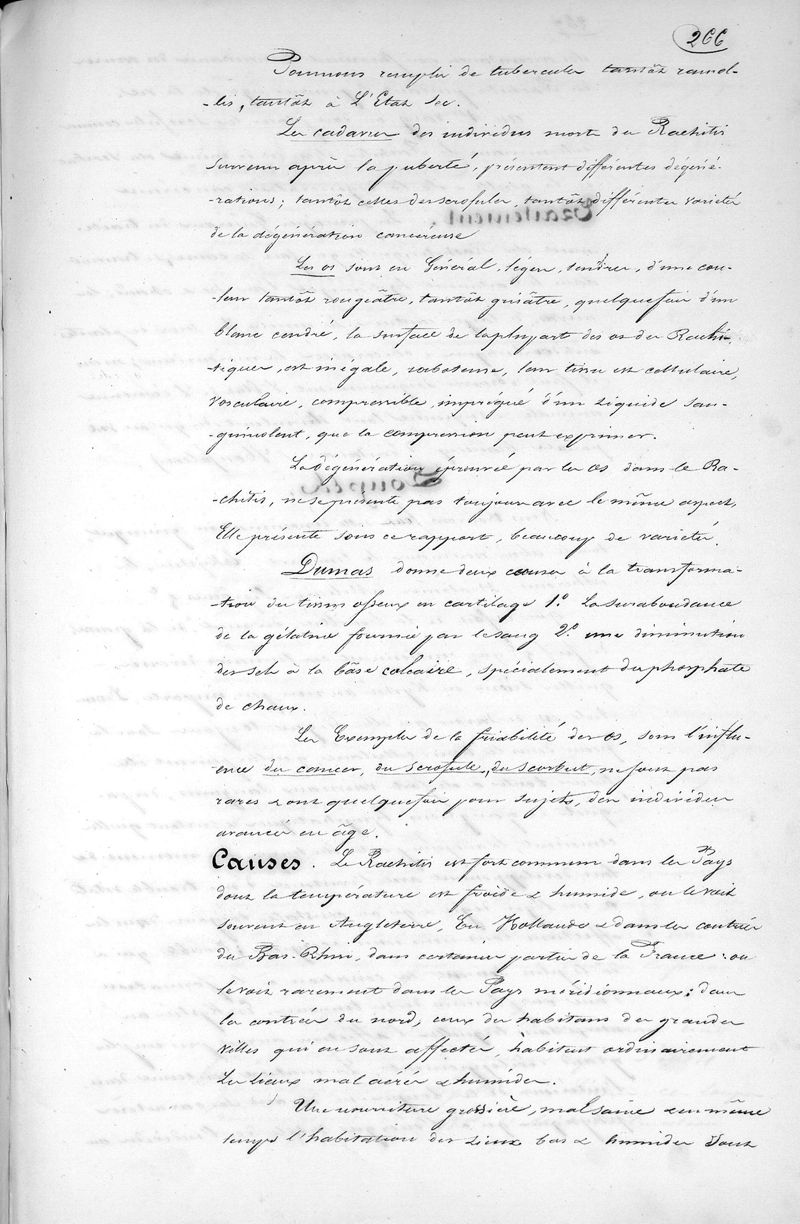 266
Poumons remplis de tubercules tantôt ramol-
-lis, tantôt à L'Etat Sec.
Les cadavres des individus morts du Rachitis
survenu après la puberté, présentent différentes dégéné-
-rations; tantôt celles des scrofules, tantôt différentes variétés
de la dégénération cancéreuse
Les os sont en Général, légers, tendres, d'une cou-
leur tantôt rougeâtre, tantôt grisâtre, quelquefois d'un
blanc cendré, la surface de la plupart des os des Rachi-
-tiques, est inégale, raboteuse, leur tissu est cellulaire,
vasculaire, compressible, imprégné d'un Liquide san-
-guinolent, que la compression peut exprimer.
La dégénération éprouvée par les os dans le Ra-
-chitis, ne se présente pas toujours avec le même aspect,
Elle présente sous ce rapport, beaucoup de variétés.
Dumas donne deux causes à la transforma-
-tion du tissus osseux en cartilage 1.° La surabondance
de la gélatine fournie par le sang 2.° une diminution
des sels à la bâse calcaire, spécialement du phosphate
de chaux.
Les Exemples de la friabilité des os, sous l'influ-
ence du cancer, du scrofule, du scorbut, ne sont pas
rares & ont quelquefois pour sujets, des individus
avancés en âge.
Causes. Le Rachitis est fort commun dans les Pays
dont la température est froide & humide, on le voit
souvent en Angleterre, En Hollande & dans les contrées
du Bas-Rhin, dans certaines parties de la France: on
le voit rarement dans les Pays méridionnaux: dans
les contrées du nord, ceux des habitans des grandes
villes qui en sont affectés, habitent ordinairement
Les Lieux mal aérés & humides.
Une nourriture grossière, mal saine & en même
temps l'habitation des Lieux bas & humides sont